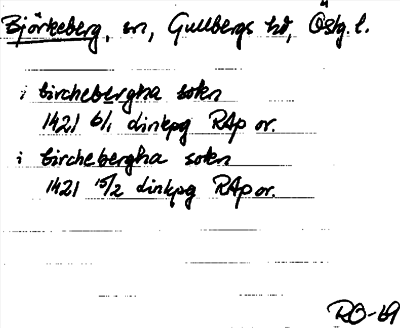 Björkeberg, sn, Gullbergs hd, Östg. l.
i birchebergha sokn
1421 6/1 dinkpg RAp or.
i birchebergha sokn
1421 15/2 dinkpg RAp or.
RO-69